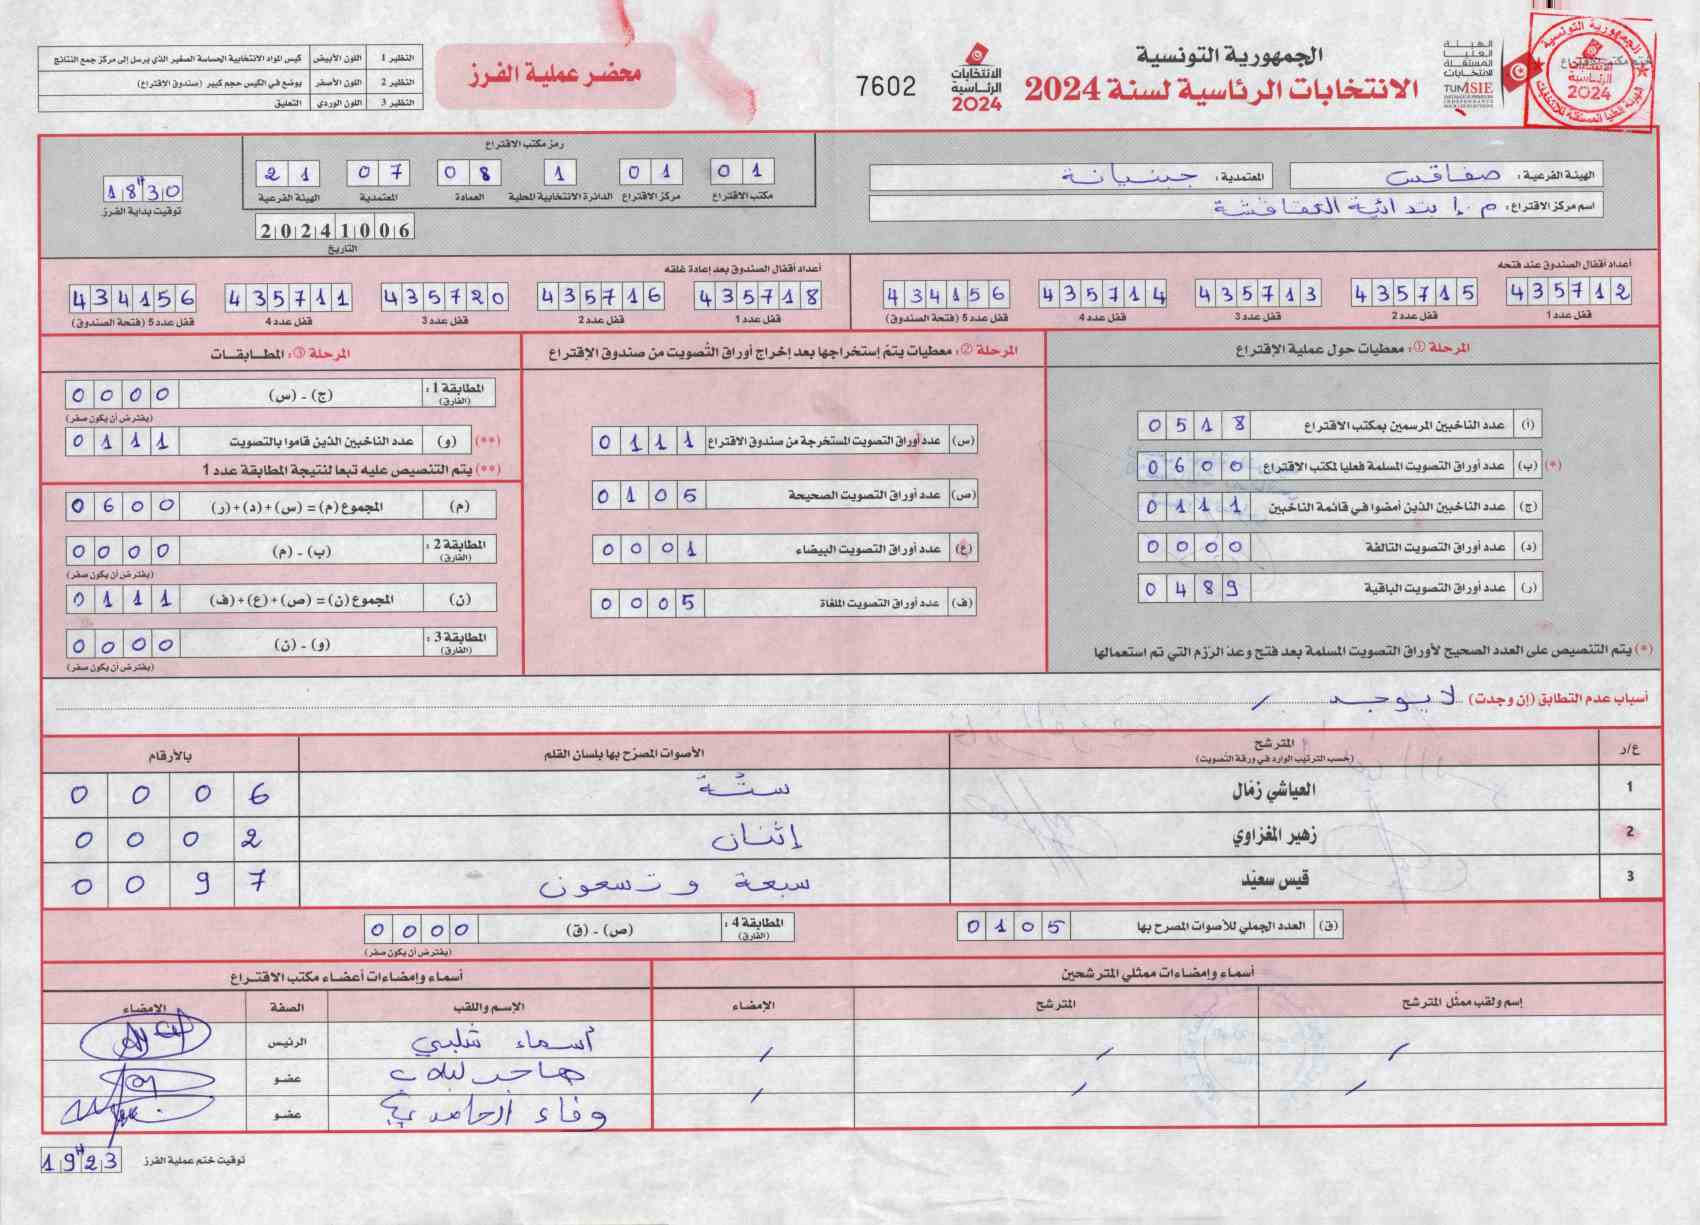 الجمهورية التونسية
الانتخابات الرئاسية لسنة 2024
الهيئة العليا المستقلة للانتخابات
TUNISIE
الانتخابات الرئاسية 2024
7602
محضر عملية الفرز
النظير 1 اللون الأبيض كيس المواد الانتخابية الحساسة الصغير الذي يرسل إلى مركز جمع النتائج
النظير 2 اللون الأصفر يوضع في الكيس حجم كبير (صندوق الاقتراع)
النظير 3 اللون الوردي التعليق
الهيئة الفرعية: صفاقس المعتمدية: جبنيانة
اسم مركز الاقتراع: م.إبتدائية العقافشة
رمز مكتب الاقتراع
01 01 1 08 07 21
مكتب الاقتراع مركز الاقتراع الدائرة الانتخابية المحلية العمادة المعتمدية الهيئة الفرعية
20241006
التاريخ
18H30
توقيت بداية الفرز
أعداد أقفال الصندوق عند فتحه
435712 435715 435713 435714 434156
قفل عدد 1 قفل عدد 2 قفل عدد 3 قفل عدد 4 قفل عدد 5 (فتحة الصندوق)
أعداد أقفال الصندوق بعد إعادة غلقه
435718 435716 435720 435711 434156
قفل عدد 1 قفل عدد 2 قفل عدد 3 قفل عدد 4 قفل عدد 5 (فتحة الصندوق)
المرحلة ①: معطيات حول عملية الإقتراع
(أ) عدد الناخبين المرسمين بمكتب الاقتراع 0518
(*) (ب) عدد أوراق التصويت المسلمة فعليا لمكتب الاقتراع 0600
(ج) عدد الناخبين الذين أمضوا في قائمة الناخبين 0111
(د) عدد أوراق التصويت التالفة 0000
(ر) عدد أوراق التصويت الباقية 0489
(*) يتم التنصيص على العدد الصحيح لأوراق التصويت المسلمة بعد فتح وعد الرّزم التي تم استعمالها
المرحلة ②: معطيات يتمّ إستخراجها بعد إخراج أوراق التّصويت من صندوق الإقتراع
(س) عدد أوراق التصويت المستخرجة من صندوق الاقتراع 0111
(ص) عدد أوراق التصويت الصحيحة 0105
(ع) عدد أوراق التصويت البيضاء 0001
(ف) عدد أوراق التصويت الملغاة 0005
المرحلة ③: المطابقات
المطابقة 1: (الفارق) (ج) - (س) 0000
(يفترض أن يكون صفر)
(**) (و) عدد الناخبين الذين قاموا بالتصويت 0111
(**) يتم التنصيص عليه تبعا لنتيجة المطابقة عدد 1
(م) المجموع (م) = (س)+(د)+(ر) 0600
المطابقة 2: (الفارق) (ب) - (م) 0000
(يفترض أن يكون صفر)
(ن) المجموع (ن) = (ص)+(ع)+(ف) 0111
المطابقة 3: (الفارق) (و) - (ن) 0000
(يفترض أن يكون صفر)
أسباب عدم التطابق (إن وجدت) لا يوجد /
ع/ر المترشح (حسب الترتيب الوارد في ورقة التصويت) الأصوات المصرّح بها بلسان القلم بالأرقام
1 العياشي زمّال ستّة 0006
2 زهير المغزاوي إثنان 0002
3 قيس سعيّد سبعة و تسعون 0097
(ق) العدد الجملي للأصوات المصرح بها 0105
المطابقة 4: (الفارق) (ص) - (ق) 0000
(يفترض أن يكون صفر)
أسماء وإمضاءات ممثلي المترشحين
إسم ولقب ممثّل المترشح المترشح الإمضاء
/ / /
/ / /
أسماء وإمضاءات أعضاء مكتب الاقتراع
الإسم واللقب الصفة الإمضاء
أسماء شلبي الرئيس
هاجر عضو
وفاء الحامدي عضو
توقيت ختم عملية الفرز 19H23